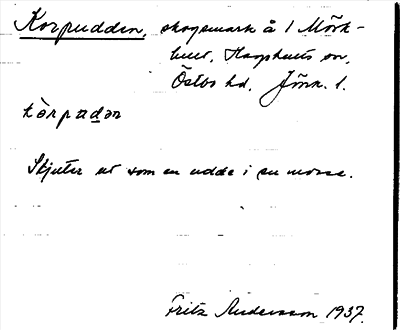 Korpudden, skogsmark å 1 Mörk-
hult, Fågelhults sn,
Östbo hd, Jönk. l.
kòrpudən
Skjuter ut som en udde i en mosse.
Fritz Andersson 1937.